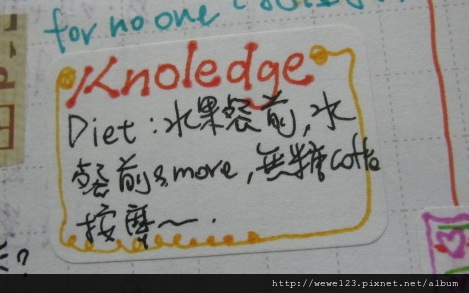 for no one
Knoledge
Diet : 水果餐前, 水
餐前&more, 無糖coffe
按摩～.
http://wewe123.pixnet.net/album